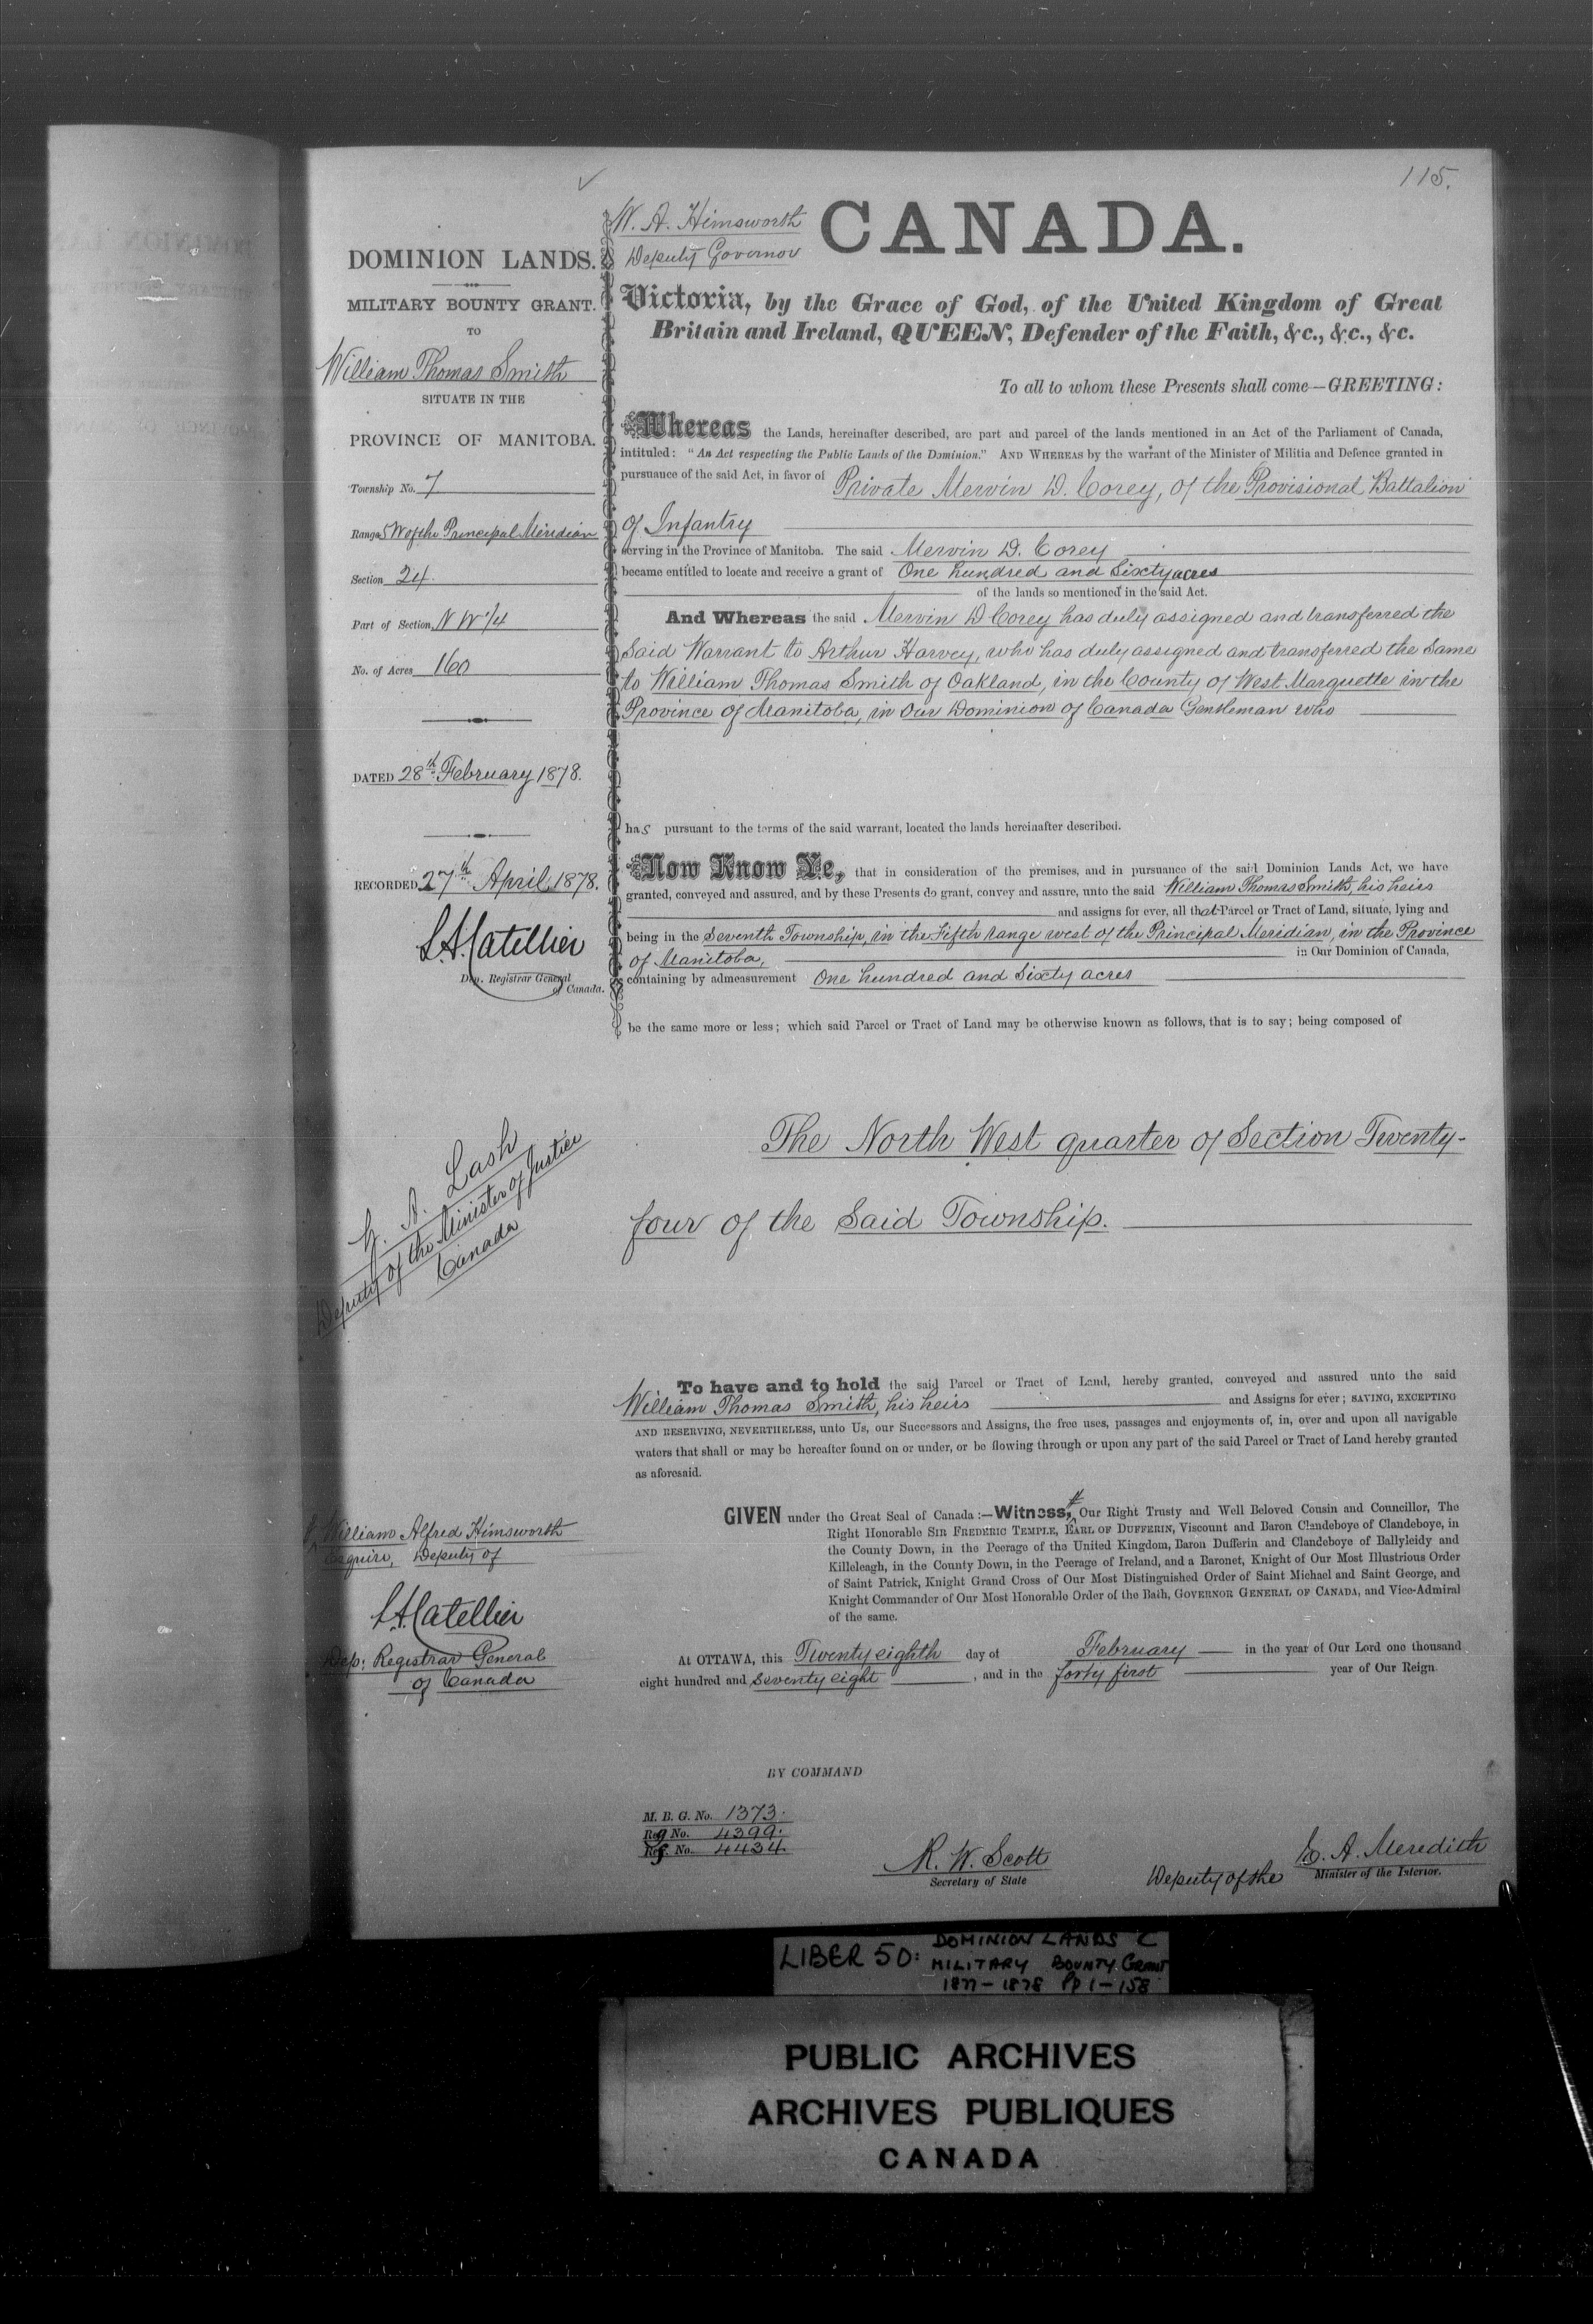 115.
W. A. Himsworth
Deputy Governor
CANADA.
DOMINION LANDS.
MILITARY BOUNTY GRANT.
TO
William Thomas Smith
SITUATE IN THE
PROVINCE OF MANITOBA.
Township No. 7
Range 5 W of the Principal Meridian
Section 24.
Part of Section, N W 1/4
No. of Acres 160
DATED 28th February 1878.
RECORDED 27th April, 1878.
L. A. Catellier
Dep. Registrar General
of Canada.
Victoria, by the Grace of God, of the United Kingdom of Great
Britain and Ireland, QUEEN, Defender of the Faith, &c., &c., &c.
To all to whom these Presents shall come—GREETING:
Whereas the Lands, hereinafter described, are part and parcel of the lands mentioned in an Act of the Parliament of Canada,
intituled: "An Act respecting the Public Lands of the Dominion." AND WHEREAS by the warrant of the Minister of Militia and Defence granted in
pursuance of the said Act, in favor of Private Mervin D. Corey, of the Provisional Battalion
of Infantry
serving in the Province of Manitoba. The said Mervin D. Corey
became entitled to locate and receive a grant of One hundred and Sixty acres
of the lands so mentioned in the said Act.
And Whereas the said Mervin D Corey has duly assigned and transferred the
Said Warrant to Arthur Harvey, who has duly assigned and transferred the Same
to William Thomas Smith of Oakland, in the County of West Marquette in the
Province of Manitoba, in Our Dominion of Canada Gentleman who
has pursuant to the terms of the said warrant, located the lands hereinafter described.
Now Know Ye, that in consideration of the premises, and in pursuance of the said Dominion Lands Act, we have
granted, conveyed and assured, and by these Presents do grant, convey and assure, unto the said William Thomas Smith, his heirs
and assigns for ever, all that Parcel or Tract of Land, situate, lying and
being in the Seventh Township, in the Fifth range west of the Principal Meridian, in the Province
of Manitoba, in Our Dominion of Canada,
containing by admeasurement One hundred and Sixty acres
be the same more or less; which said Parcel or Tract of Land may be otherwise known as follows, that is to say; being composed of
The North West quarter of Section Twenty-
four of the Said Township.
Z. A. Lash
Deputy of the Minister of Justice
Canada
To have and to hold the said Parcel or Tract of Land, hereby granted, conveyed and assured unto the said
William Thomas Smith, his heirs and Assigns for ever; SAVING, EXCEPTING
AND RESERVING, NEVERTHELESS, unto Us, our Successors and Assigns, the free uses, passages and enjoyments of, in, over and upon all navigable
waters that shall or may be hereafter found on or under, or be flowing through or upon any part of the said Parcel or Tract of Land hereby granted
as aforesaid.
GIVEN under the Great Seal of Canada:—Witness, Our Right Trusty and Well Beloved Cousin and Councillor, The
Right Honorable SIR FREDERIC TEMPLE, EARL OF DUFFERIN, Viscount and Baron Clandeboye of Clandeboye, in
the County Down, in the Peerage of the United Kingdom, Baron Dufferin and Clandeboye of Ballyleidy and
Killeleagh, in the County Down, in the Peerage of Ireland, and a Baronet, Knight of Our Most Illustrious Order
of Saint Patrick, Knight Grand Cross of Our Most Distinguished Order of Saint Michael and Saint George, and
Knight Commander of Our Most Honorable Order of the Bath, GOVERNOR GENERAL OF CANADA, and Vice-Admiral
of the same.
William Alfred Himsworth
Esquire, Deputy of
L. A. Catellier
Dep: Registrar General
of Canada
At OTTAWA, this Twenty eighth day of February in the year of Our Lord one thousand
eight hundred and Seventy eight, and in the forty first year of Our Reign.
BY COMMAND
M. B. G. No. 1373.
Reg No. 4399.
Ref. No. 4434
R. W. Scott
Secretary of State
E. A. Meredith
Deputy of the Minister of the Interior.
LIBER 50: DOMINION LANDS C
MILITARY BOUNTY GRANT
1877-1878 Pp 1-158
PUBLIC ARCHIVES
ARCHIVES PUBLIQUES
CANADA